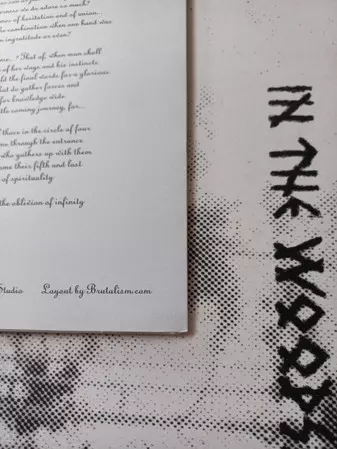 ness we do adore so much?
ence of hesitation and of union...
the combination when one hand was
n ingratitude or even?
me...? That of, when man shall
of her ways and his instincts
ld the final words for a glorious
hat do gather forces and
for knowledge wide
ttle coming journey, for...
f thace in the circle of four
me through the entrance
who gathers up with them
ome their fifth and last
of spirituality
the oblivion of infinity
Studio Layout by Brutalism.com
IN THE WOODS